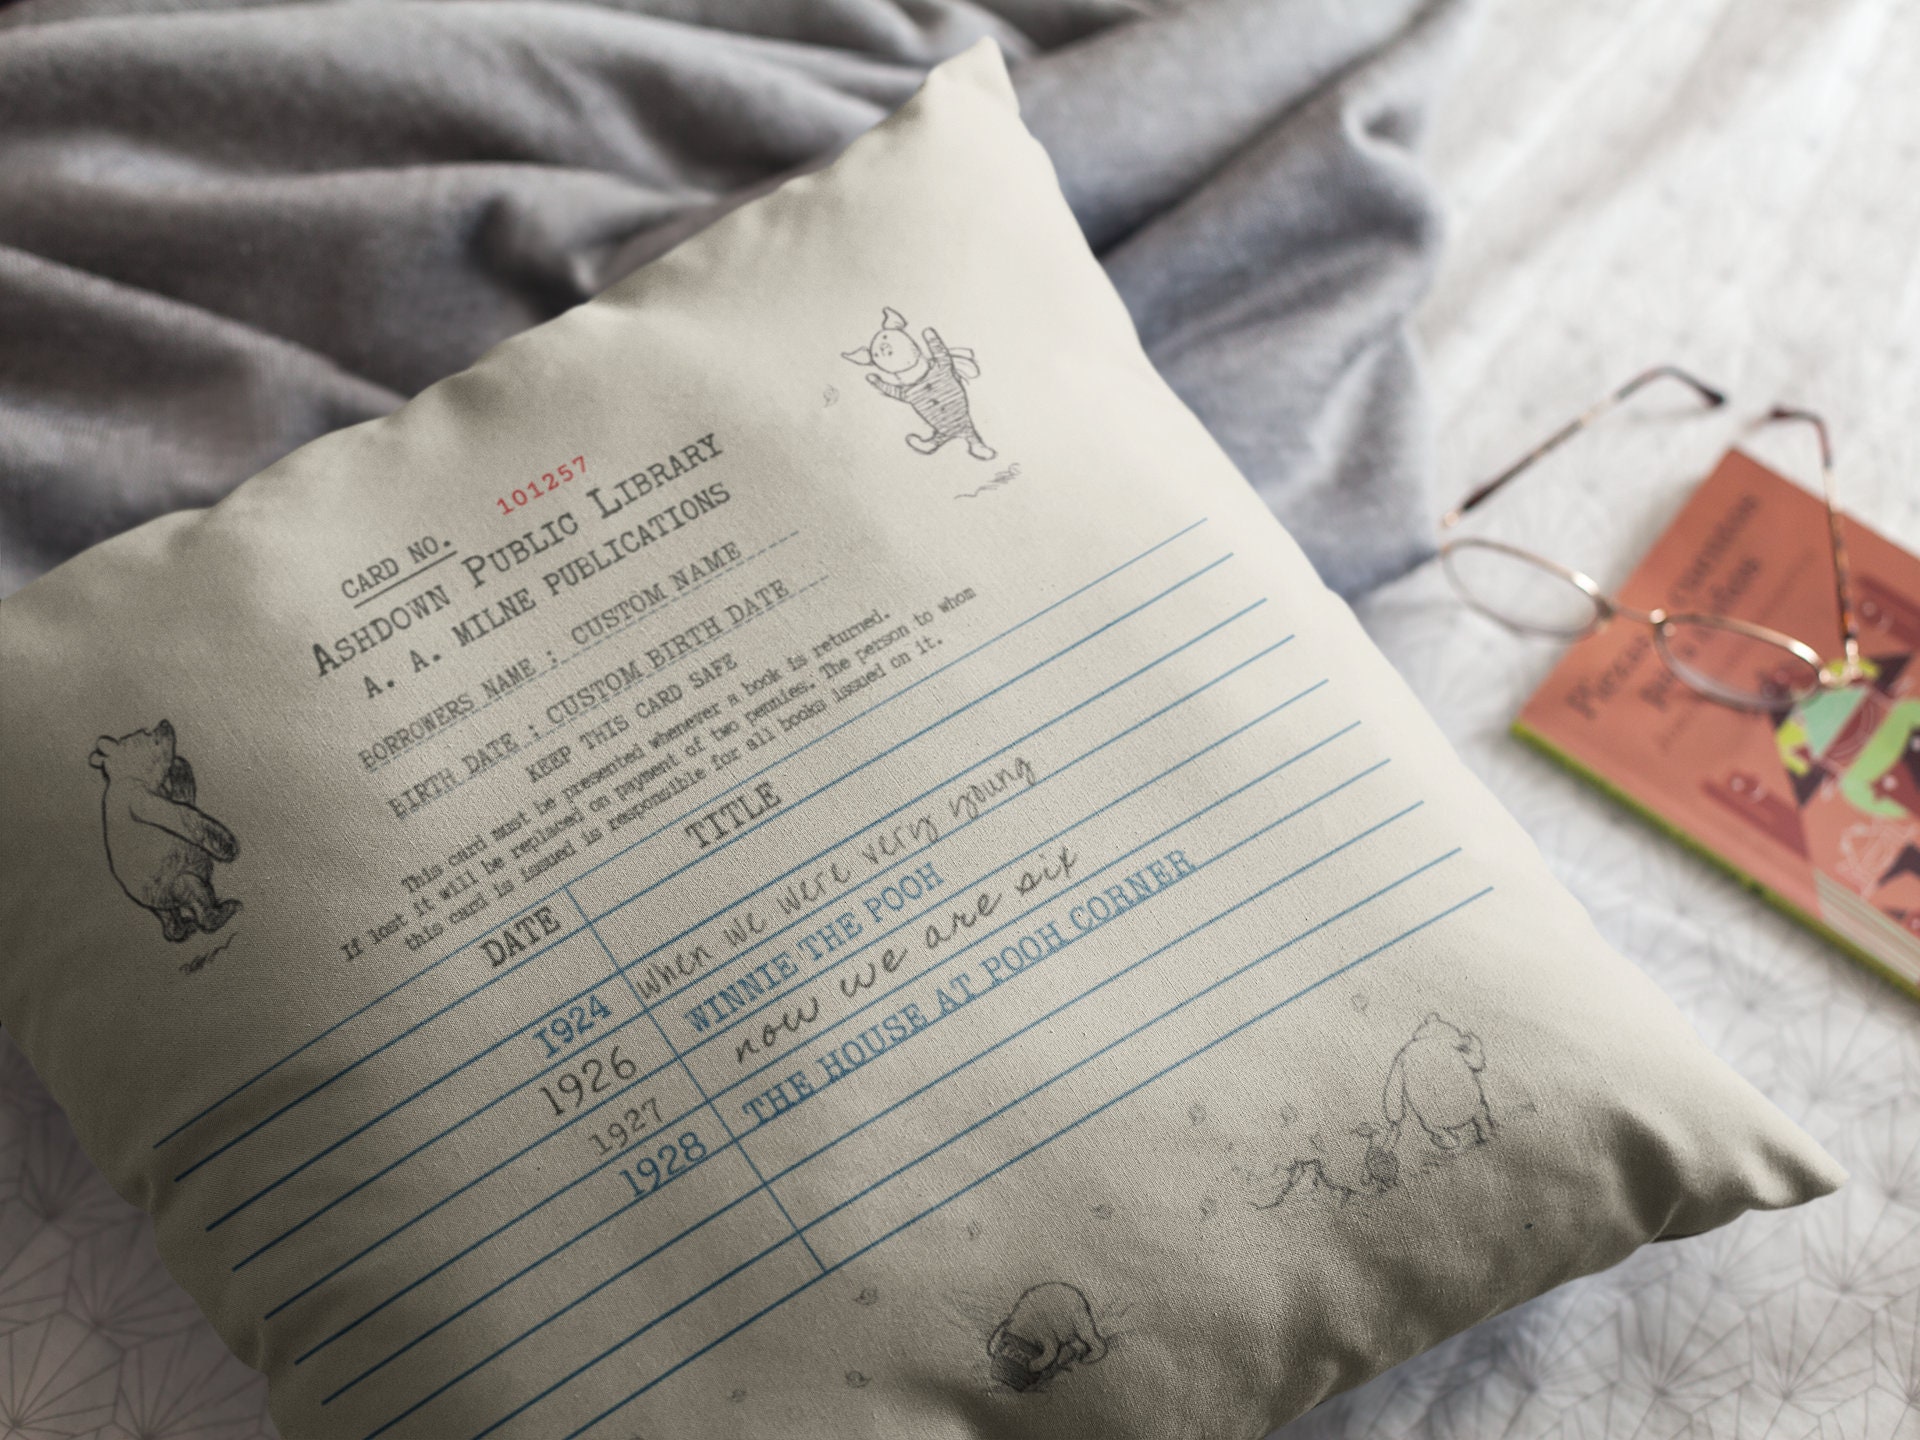 CARD NO. 101257
ASHDOWN PUBLIC LIBRARY
A. A. MILNE PUBLICATIONS
BORROWERS NAME : CUSTOM NAME
BIRTH DATE : CUSTOM BIRTH DATE
KEEP THIS CARD SAFE
This card must be presented whenever a book is returned.
If lost it will be replated on payment of two pennies. The person to whom
this card is issued is responsible for all books issued on it.
DATE TITLE
1924 when we were very young
1926 WINNIE THE POOH
1927 now we are six
1928 THE HOUSE AT POOH CORNER